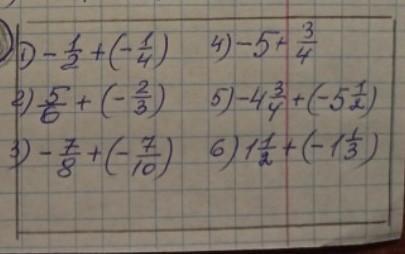 1) -1/2 + (-1/4) 4) -5 + 3/4
2) 5/6 + (-2/3) 5) -4 3/4 + (-5 1/2)
3) -7/8 + (-7/10) 6) 1 1/2 + (-1 1/3)